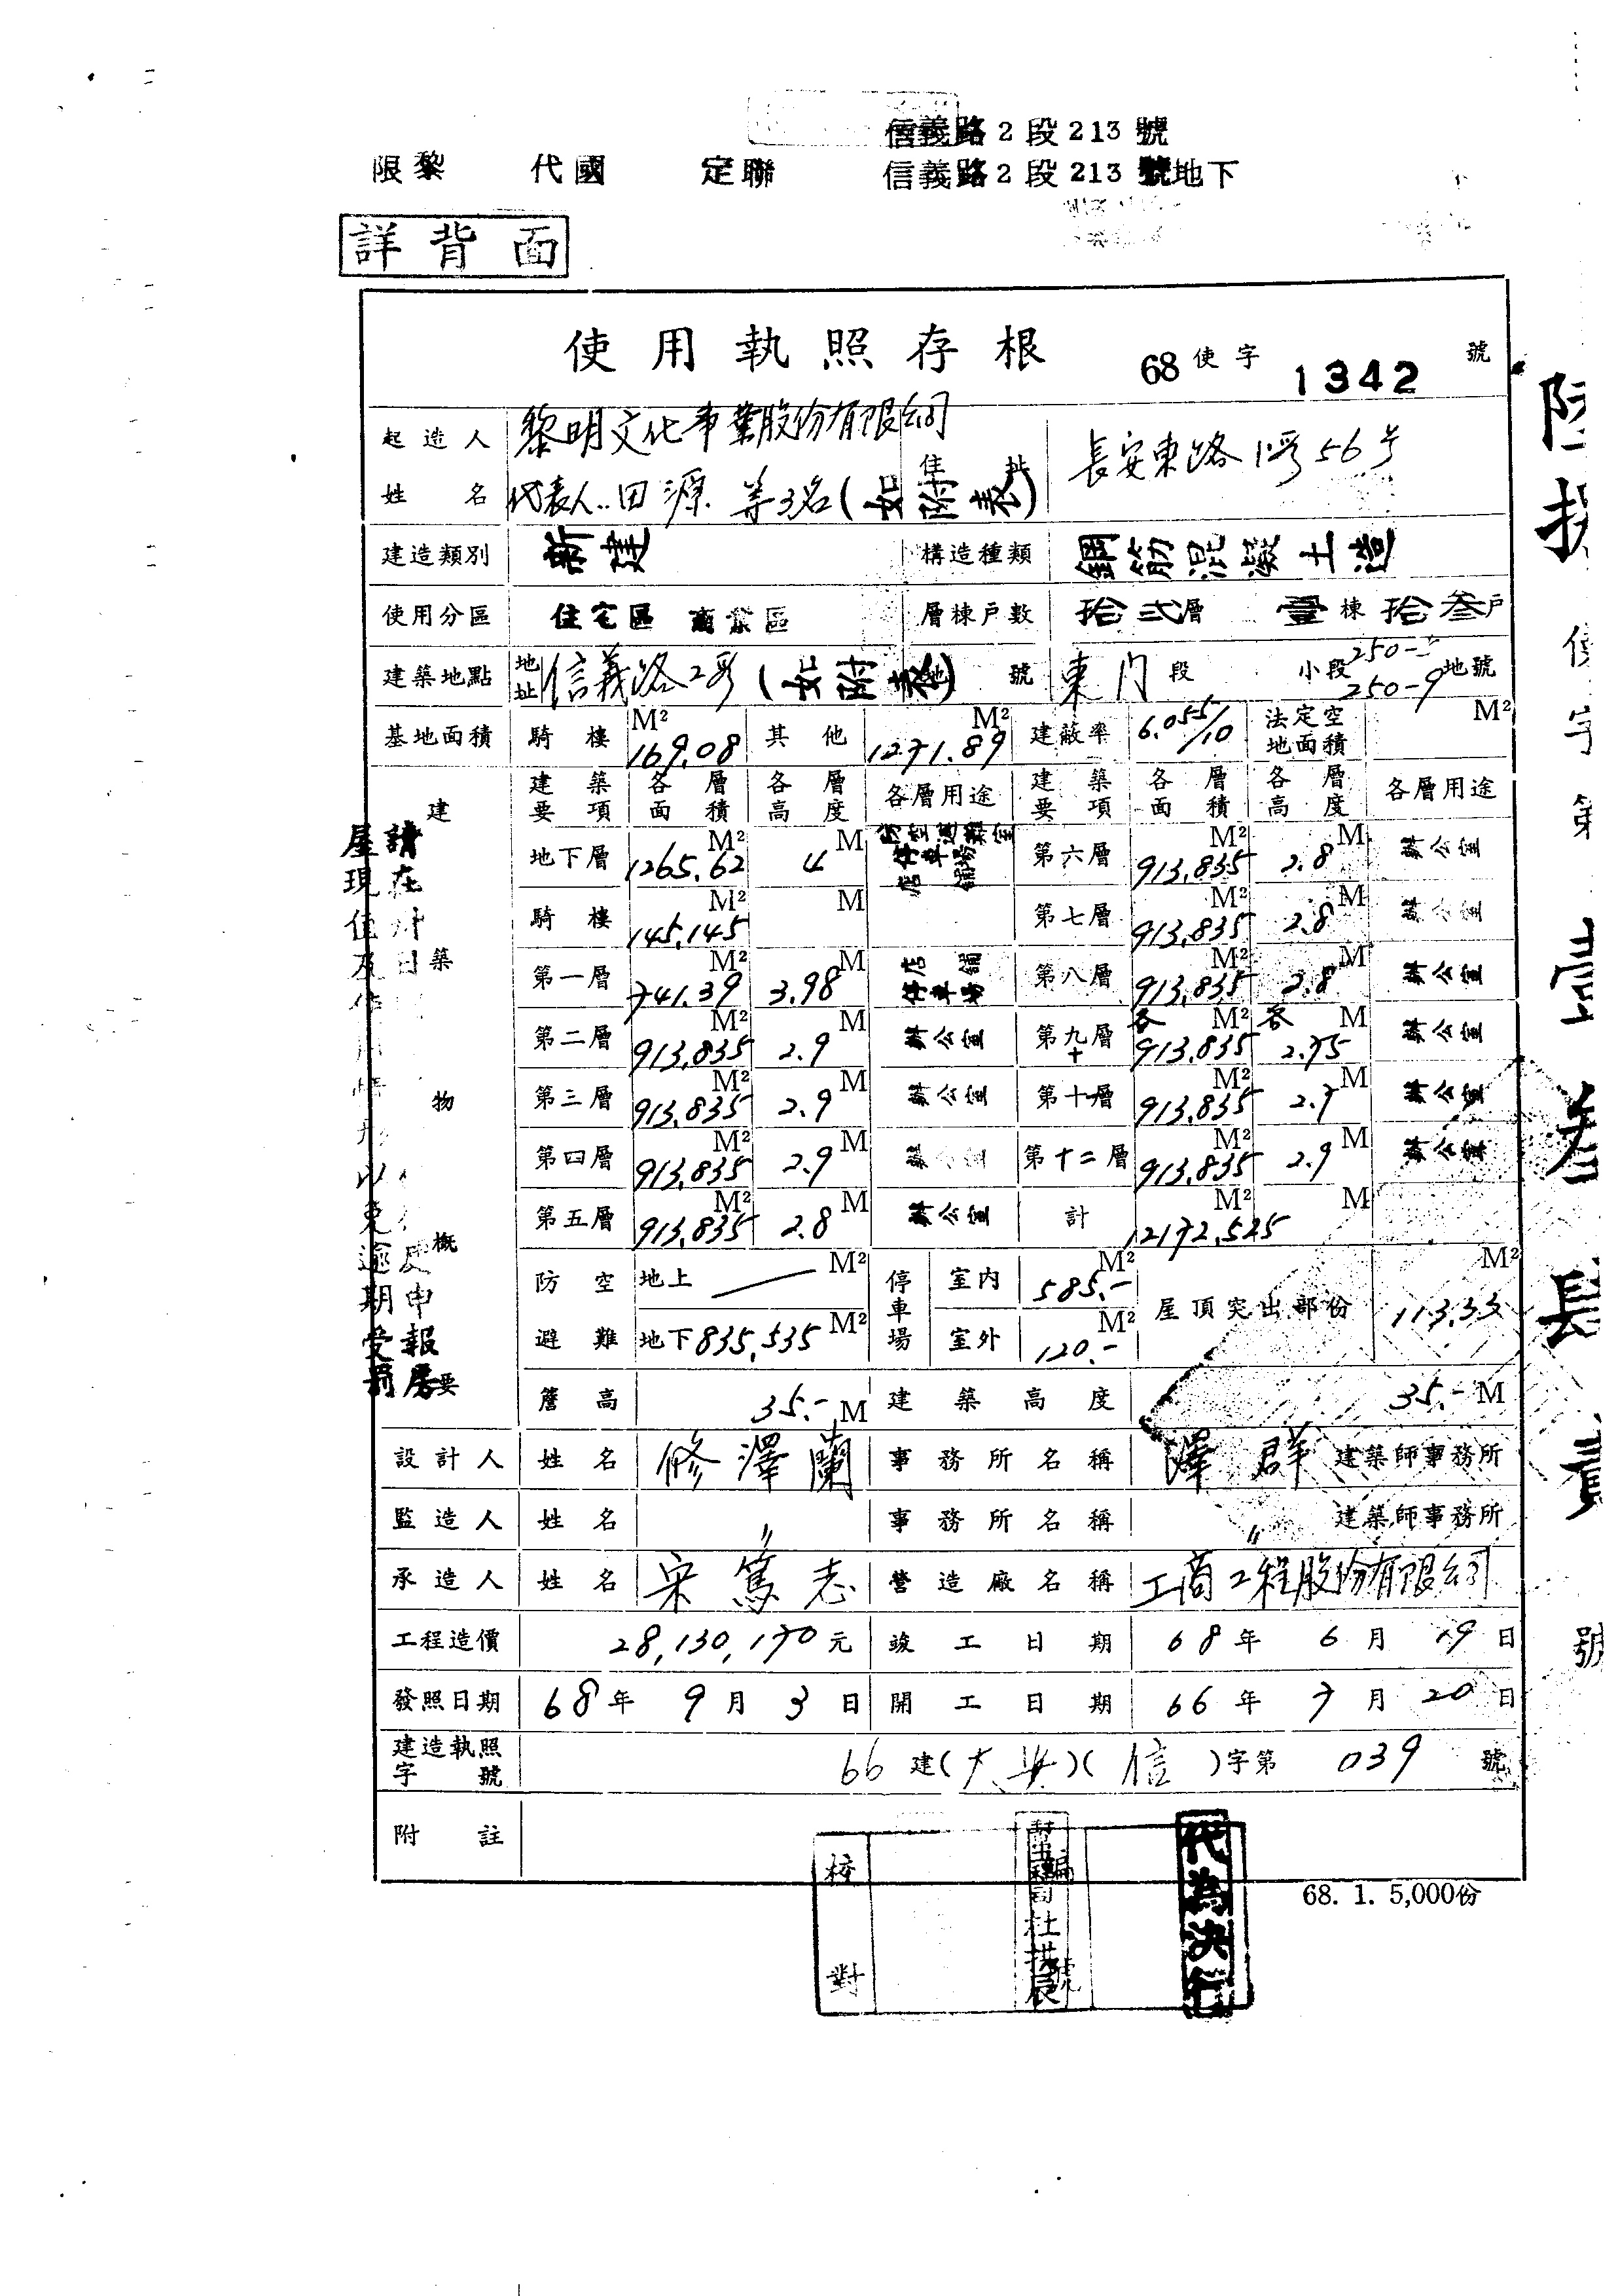 信義路2段213號
限黎 代國 定聯 信義路2段213號地下
詳背面
使用執照存根 68使字 1342 號
起造人姓名 黎明文化事業股份有限公司 代表人..田源 等3名(如附表) 住址 長安東路1段56号
建造類別 新建 構造種類 鋼筋混凝土造
使用分區 住宅區 商業區 層棟戶數 拾弍層 壹棟 拾叁戶
建築地點 地址 信義路2段(如附表) 地號 東門段 小段 250-9地號
基地面積 騎樓 M² 169.08 其他 M² 1271.89 建蔽率 6.055/10 法定空地面積 M²
建築物概要 建築要項 各層面積 各層高度 各層用途 建築要項 各層面積 各層高度 各層用途
地下層 M² 1265.62 M 4 防空避難室 停車場 店舖 第六層 M² 913.835 M 2.8 辦公室
騎樓 M² 145.145 M 第七層 M² 913.835 M 2.8 辦公室
第一層 M² 741.39 M 3.98 店舖 停車場 第八層 M² 913.835 M 2.8 辦公室
第二層 M² 913.835 M 2.9 辦公室 第九層 十 各 M² 913.835 各 M 2.75 辦公室
第三層 M² 913.835 M 2.9 辦公室 第十一層 M² 913.835 M 2.7 辦公室
第四層 M² 913.835 M 2.9 第十二層 M² 913.835 M 2.9 辦公室
第五層 M² 913.835 M 2.8 辦公室 計 M² 12172.525 M
防空避難 地上 — M² 停車場 室內 M² 585.- 屋頂突出部份 M² 113.33
地下 835.535 M² 室外 M² 120.-
簷高 35.- M 建築高度 35.- M
設計人 姓名 修澤蘭 事務所名稱 澤群 建築師事務所
監造人 姓名 〃 事務所名稱 〃 建築師事務所
承造人 姓名 宋篤志 營造廠名稱 工商工程股份有限公司
工程造價 28,130,170元 竣工日期 68年 6月 19日
發照日期 68年 9月 3日 開工日期 66年 7月 20日
建造執照字號 66建( )(信)字第 039 號
附註
校對
杜拱辰
代為決行
68. 1. 5,000份
請在
屋現值及
以免逾期受罰
申報房
使字第
號